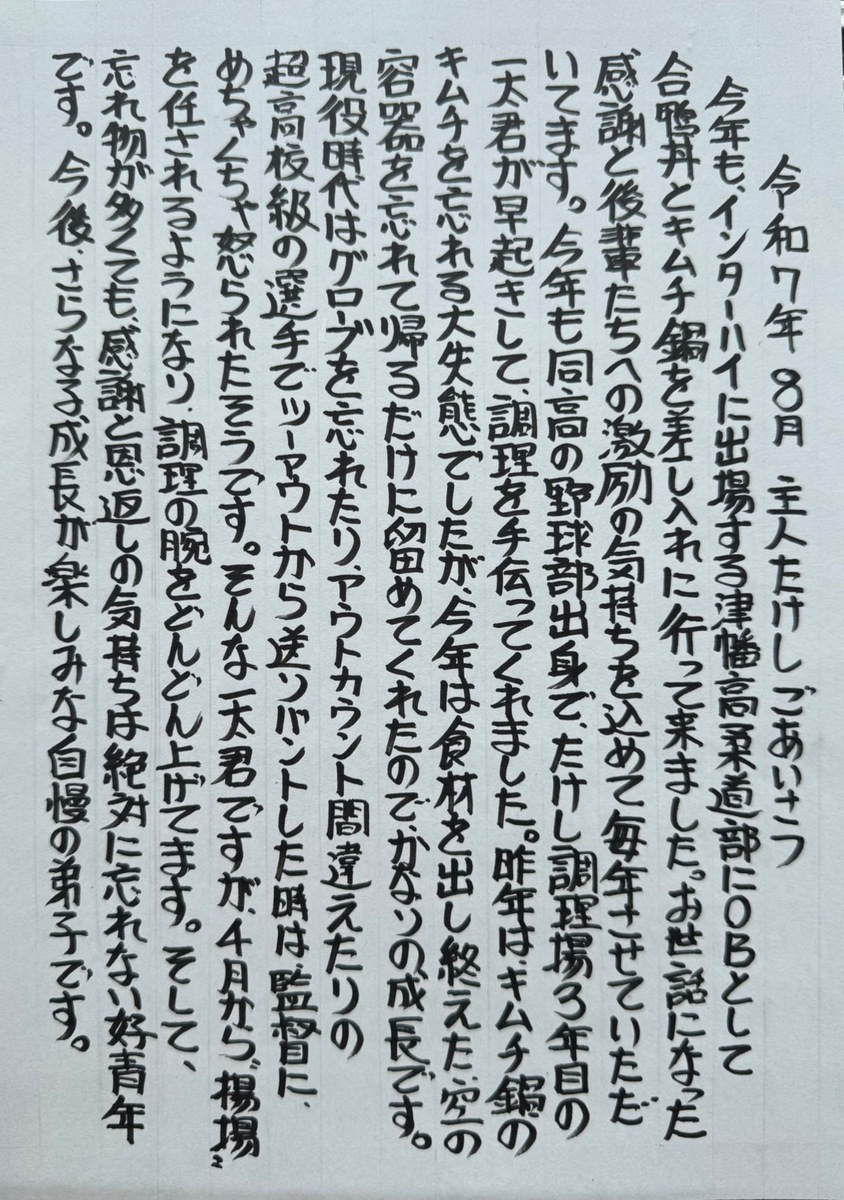 令和7年8月 主人たけしごあいさつ
今年も、インターハイに出場する津幡高柔道部にOBとして
合鴨丼とキムチ鍋を差し入れに行って来ました。お世話になった
感謝と後輩たちへの激励の気持ちを込めて毎年させていただ
いてます。今年も同高の野球部出身で、たけし調理場3年目の
一太君が早起きして、調理を手伝ってくれました。昨年は、キムチ鍋の
キムチを忘れる大失態でしたが、今年は食材を出し終えた、空の
容器を忘れて帰るだけに留めてくれたので、かなりの成長です。
現役時代はグローブを忘れたり、アウトカウント間違えたりの
超高校級の選手でツーアウトから送りバントした時は、監督に、
めちゃくちゃ怒られたそうです。そんな一太君ですが、4月から〝揚場〟
を任されるようになり、調理の腕をどんどん上げてます。そして、
忘れ物が多くても、感謝と恩返しの気持ちは絶対に忘れない好青年
です。今後、さらなる成長が楽しみな自慢の弟子です。